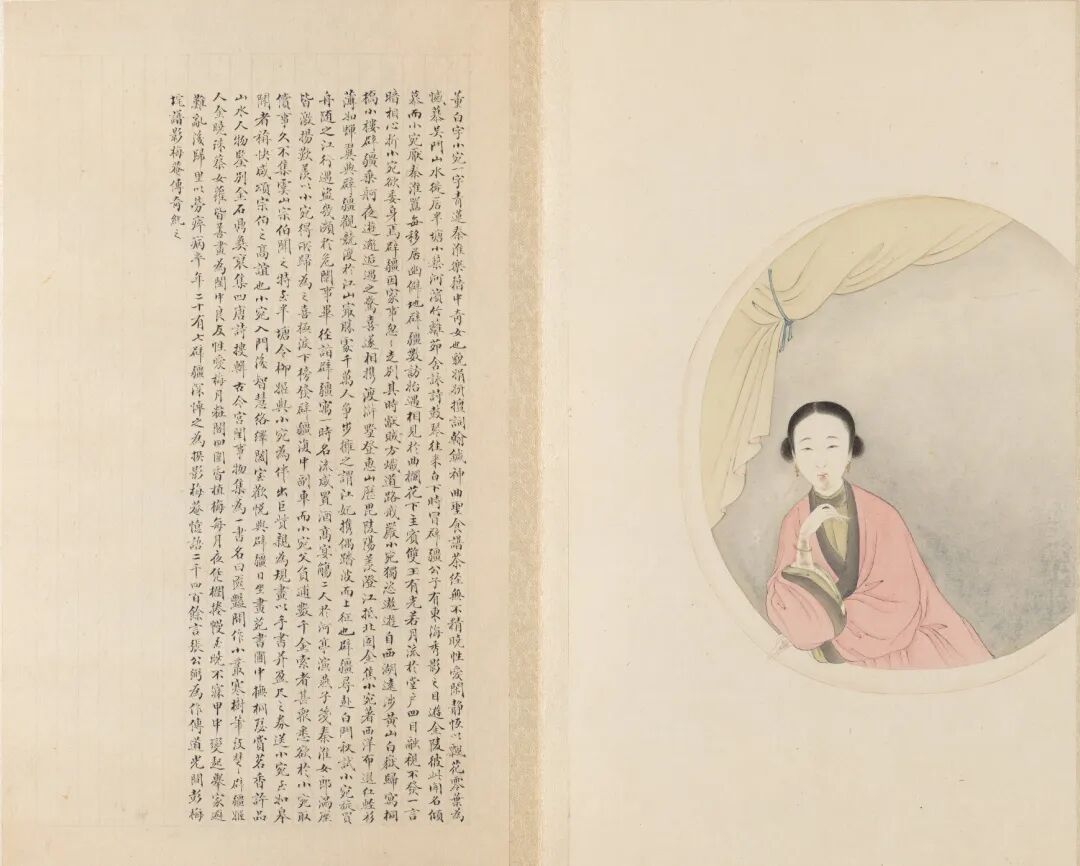 董白字小宛一字青蓮秦淮樂籍中奇女也貌娟妍擅詞翰鍼神曲聖食譜茶經無不精曉性愛閒靜恆以飄花零葉為
憾慕吳門山水徙居半塘小築河濱竹籬茆舍詠詩鼓琴往來白下時冒辟疆公子有東海秀影之目遊金陵彼此聞名傾
慕而小宛厭秦淮囂每移居幽僻地辟疆數訪始遇相見於曲欄花下主賓雙玉有光若月流於堂戶四目融視不發一言
暗相心折小宛欲委身焉辟疆因家事怱〻走別其時獻賊方熾道路戒嚴小宛獨恣遨遊自西湖遠涉黃山白嶽歸寓桐
橋小樓辟疆乘舸夜遊邂逅遇之驚喜遂相攜渡滸墅登惠山歷毘陵陽羨澄江抵北固金焦小宛著西洋布退紅輕衫
薄如蟬翼與辟疆觀競渡於江山最勝處千萬人爭步擁之謂江妃攜偶踏波而上征也辟疆尋赴白門秋試小宛旋買
舟隨之江行遇盜幾瀕於危闈事畢徑詣辟疆寓一時名流咸置酒高宴觴二人於河亭演燕子箋秦淮女郎滿座
皆激揚歎羨以小宛得所歸為之喜極淚下榜發辟疆復中副車而小宛父負逋數千金索者甚眾悉欲於小宛取
償事久不集虞山宗伯聞之特至半塘令柳姬與小宛為伴出巨貲親為規畫以手書并盈尺之券送小宛至如皋
聞者稱快咸頌宗伯之高誼也小宛入門後智慧絡繹闔室歡悅與辟疆日坐畫苑書圃中撫桐瑟賞茗香評品
山水人物鑒別金石鼎彝裒集四唐詩搜輯古今宮閨事物集為一書名曰匳豔閒作小叢寒樹筆致楚〻辟疆姬
人金曉珠蔡女蘿皆善畫為閨中良友性愛梅月粧閣四圍皆植梅每月夜凭欄捲幔至曉不寐甲申變起舉家避
難亂後歸里以勞瘁病卒年二十有七辟疆深悼之為撰影梅菴憶語二千四百餘言張公弼為作傳道光間彭梅
垞譜影梅菴傳奇紀之